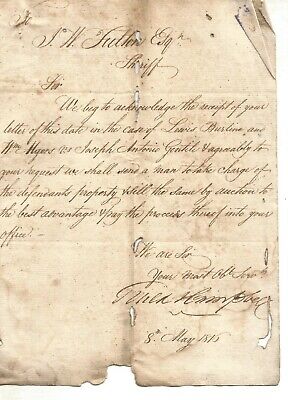 To
Jn. W. Fulton Esqr.
Sheriff
Sir
We beg to acknowledge the receipt of your
letter of this date in the case of Lewis and
Wm. Myers vs Joseph Antonio Gentil & agreably to
your request we shall send a man to take charge of
the defendants property & sell the same by auction to
the best advantage & pay the proceeds thereof into your
office.
We are Sir
Your most Obt. Servts.
8th. May 1815